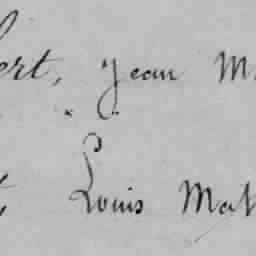 ert, Jean M
Louis Mat